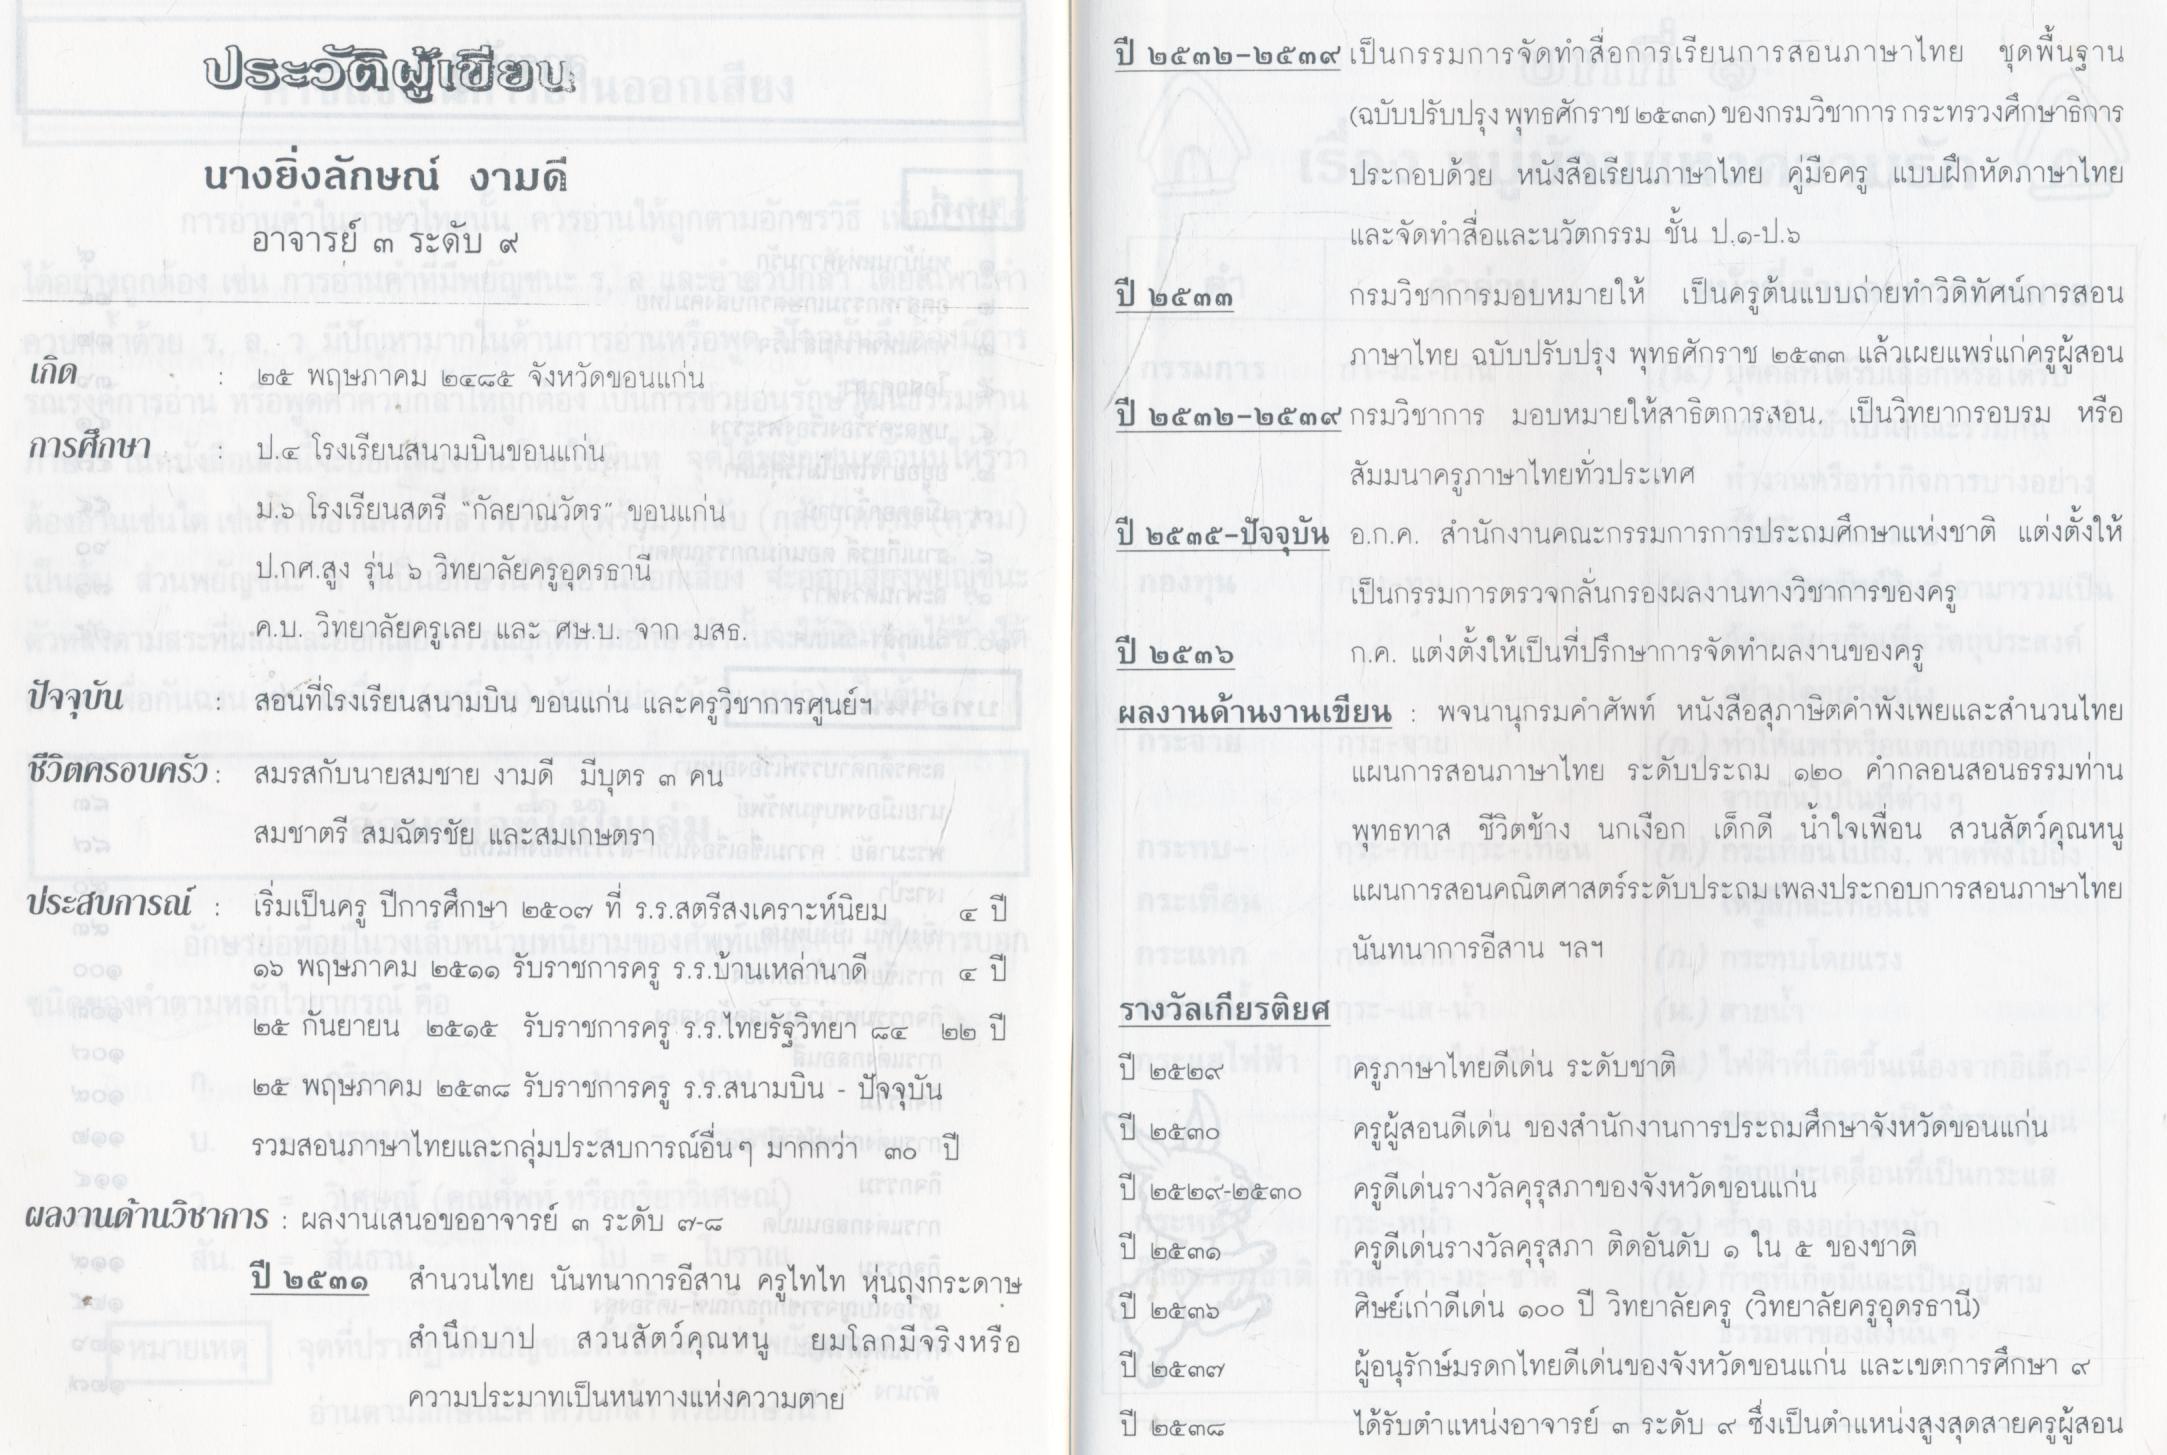 ประวัติผู้เขียน
นางยิ่งลักษณ์ งามดี
อาจารย์ ๓ ระดับ ๙
เกิด : ๒๕ พฤษภาคม ๒๔๘๕ จังหวัดขอนแก่น
การศึกษา : ป.๔ โรงเรียนสนามบินขอนแก่น
ม.๖ โรงเรียนสตรี "กัลยาณวัตร" ขอนแก่น
ป.กศ.สูง รุ่น ๖ วิทยาลัยครูอุดรธานี
ค.บ. วิทยาลัยครูเลย และ ศษ.บ. จาก มสธ.
ปัจจุบัน : สอนที่โรงเรียนสนามบิน ขอนแก่น และครูวิชาการศูนย์ฯ
ชีวิตครอบครัว : สมรสกับนายสมชาย งามดี มีบุตร ๓ คน
สมชาตรี สมฉัตรชัย และสมเกษตรา
ประสบการณ์ : เริ่มเป็นครู ปีการศึกษา ๒๕๐๗ ที่ ร.ร.สตรีสงเคราะห์นิยม ๔ ปี
๑๖ พฤษภาคม ๒๕๑๑ รับราชการครู ร.ร.บ้านเหล่านาดี ๔ ปี
๒๕ กันยายน ๒๕๑๕ รับราชการครู ร.ร.ไทยรัฐวิทยา ๘๔ ๒๒ ปี
๒๕ พฤษภาคม ๒๕๓๘ รับราชการครู ร.ร.สนามบิน - ปัจจุบัน
รวมสอนภาษาไทยและกลุ่มประสบการณ์อื่นๆ มากกว่า ๓๐ ปี
ผลงานด้านวิชาการ : ผลงานเสนอขออาจารย์ ๓ ระดับ ๗-๘
ปี ๒๕๓๑ สำนวนไทย นันทนาการอีสาน ครูไทไท หุ่นถุงกระดาษ
สำนึกบาป สวนสัตว์คุณหนู ยมโลกมีจริงหรือ
ความประมาทเป็นหนทางแห่งความตาย
ปี ๒๕๓๒-๒๕๓๙ เป็นกรรมการจัดทำสื่อการเรียนการสอนภาษาไทย ชุดพื้นฐาน
(ฉบับปรับปรุง พุทธศักราช ๒๕๓๓) ของกรมวิชาการ กระทรวงศึกษาธิการ
ประกอบด้วย หนังสือเรียนภาษาไทย คู่มือครู แบบฝึกหัดภาษาไทย
และจัดทำสื่อและนวัตกรรม ชั้น ป.๑-ป.๖
ปี ๒๕๓๓ กรมวิชาการมอบหมายให้ เป็นครูต้นแบบถ่ายทำวิดิทัศน์การสอน
ภาษาไทย ฉบับปรับปรุง พุทธศักราช ๒๕๓๓ แล้วเผยแพร่แก่ครูผู้สอน
ปี ๒๕๓๒-๒๕๓๙ กรมวิชาการ มอบหมายให้สาธิตการสอน, เป็นวิทยากรอบรม หรือ
สัมมนาครูภาษาไทยทั่วประเทศ
ปี ๒๕๓๕-ปัจจุบัน อ.ก.ค. สำนักงานคณะกรรมการการประถมศึกษาแห่งชาติ แต่งตั้งให้
เป็นกรรมการตรวจกลั่นกรองผลงานทางวิชาการของครู
ปี ๒๕๓๖ ก.ค. แต่งตั้งให้เป็นที่ปรึกษาการจัดทำผลงานของครู
ผลงานด้านงานเขียน : พจนานุกรมคำศัพท์ หนังสือสุภาษิตคำพังเพยและสำนวนไทย
แผนการสอนภาษาไทย ระดับประถม ๑๒๐ คำกลอนสอนธรรมท่าน
พุทธทาส ชีวิตช้าง นกเงือก เด็กดี น้ำใจเพื่อน สวนสัตว์คุณหนู
แผนการสอนคณิตศาสตร์ระดับประถม เพลงประกอบการสอนภาษาไทย
นันทนาการอีสาน ฯลฯ
รางวัลเกียรติยศ
ปี ๒๕๒๙ ครูภาษาไทยดีเด่น ระดับชาติ
ปี ๒๕๓๐ ครูผู้สอนดีเด่น ของสำนักงานการประถมศึกษาจังหวัดขอนแก่น
ปี ๒๕๒๙-๒๕๓๐ ครูดีเด่นรางวัลคุรุสภาของจังหวัดขอนแก่น
ปี ๒๕๓๑ ครูดีเด่นรางวัลคุรุสภา ติดอันดับ ๑ ใน ๕ ของชาติ
ปี ๒๕๓๖ ศิษย์เก่าดีเด่น ๑๐๐ ปี วิทยาลัยครู (วิทยาลัยครูอุดรธานี)
ปี ๒๕๓๗ ผู้อนุรักษ์มรดกไทยดีเด่นของจังหวัดขอนแก่น และเขตการศึกษา ๙
ปี ๒๕๓๘ ได้รับตำแหน่งอาจารย์ ๓ ระดับ ๙ ซึ่งเป็นตำแหน่งสูงสุดสายครูผู้สอน